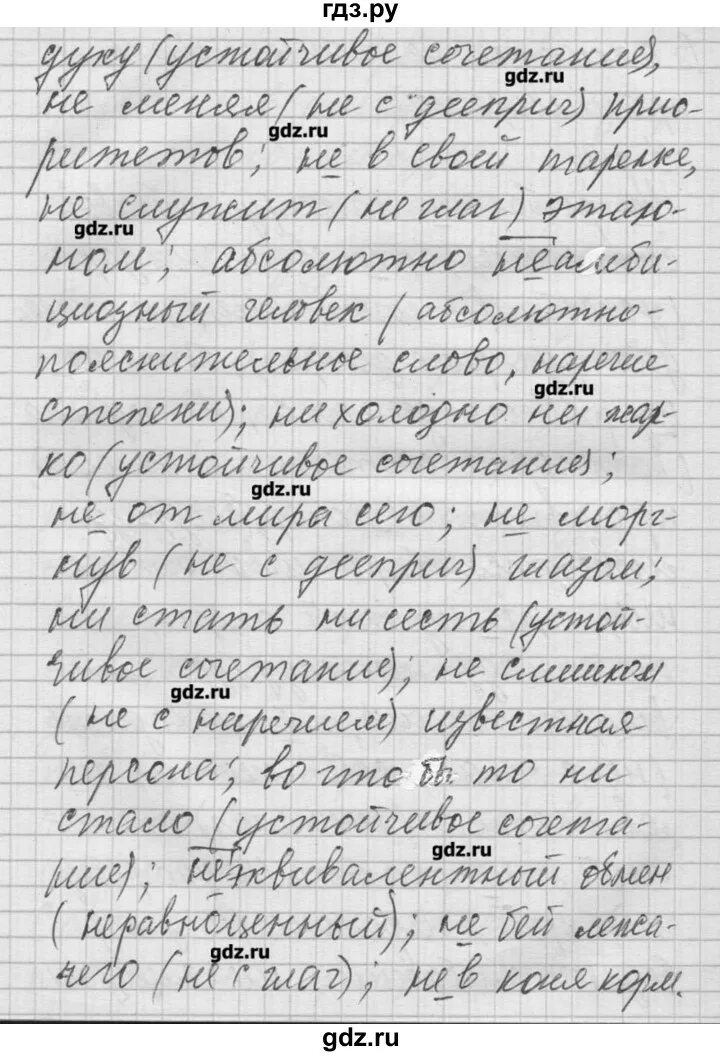 гдз.ру
духу (устойчивое сочетание),
gdz.ru
не меняя (не с дееприч) прио-
gdz.ru
ритетов; не в своей тарелке,
не служит (не глаг) этало-
gdz.ru
ном; абсолютно неамби-
циозный человек (абсолютно-
пояснительное слово, наречие
gdz.ru
степени); ни холодно ни жар-
ко (устойчивое сочетание);
gdz.ru
не от мира сего; не морг-
нув (не с дееприч) глазом;
ни стать ни сесть (устой-
чивое сочетание); не слишком
gdz.ru
(не с наречием) известная
персона; во что бы то ни
стало (устойчивое сочета-
gdz.ru
ние); неэквивалентный обмен
(неравноценный); не бей лежа-
gdz.ru
чего (не с глаг); не в коня корм.
gdz.ru